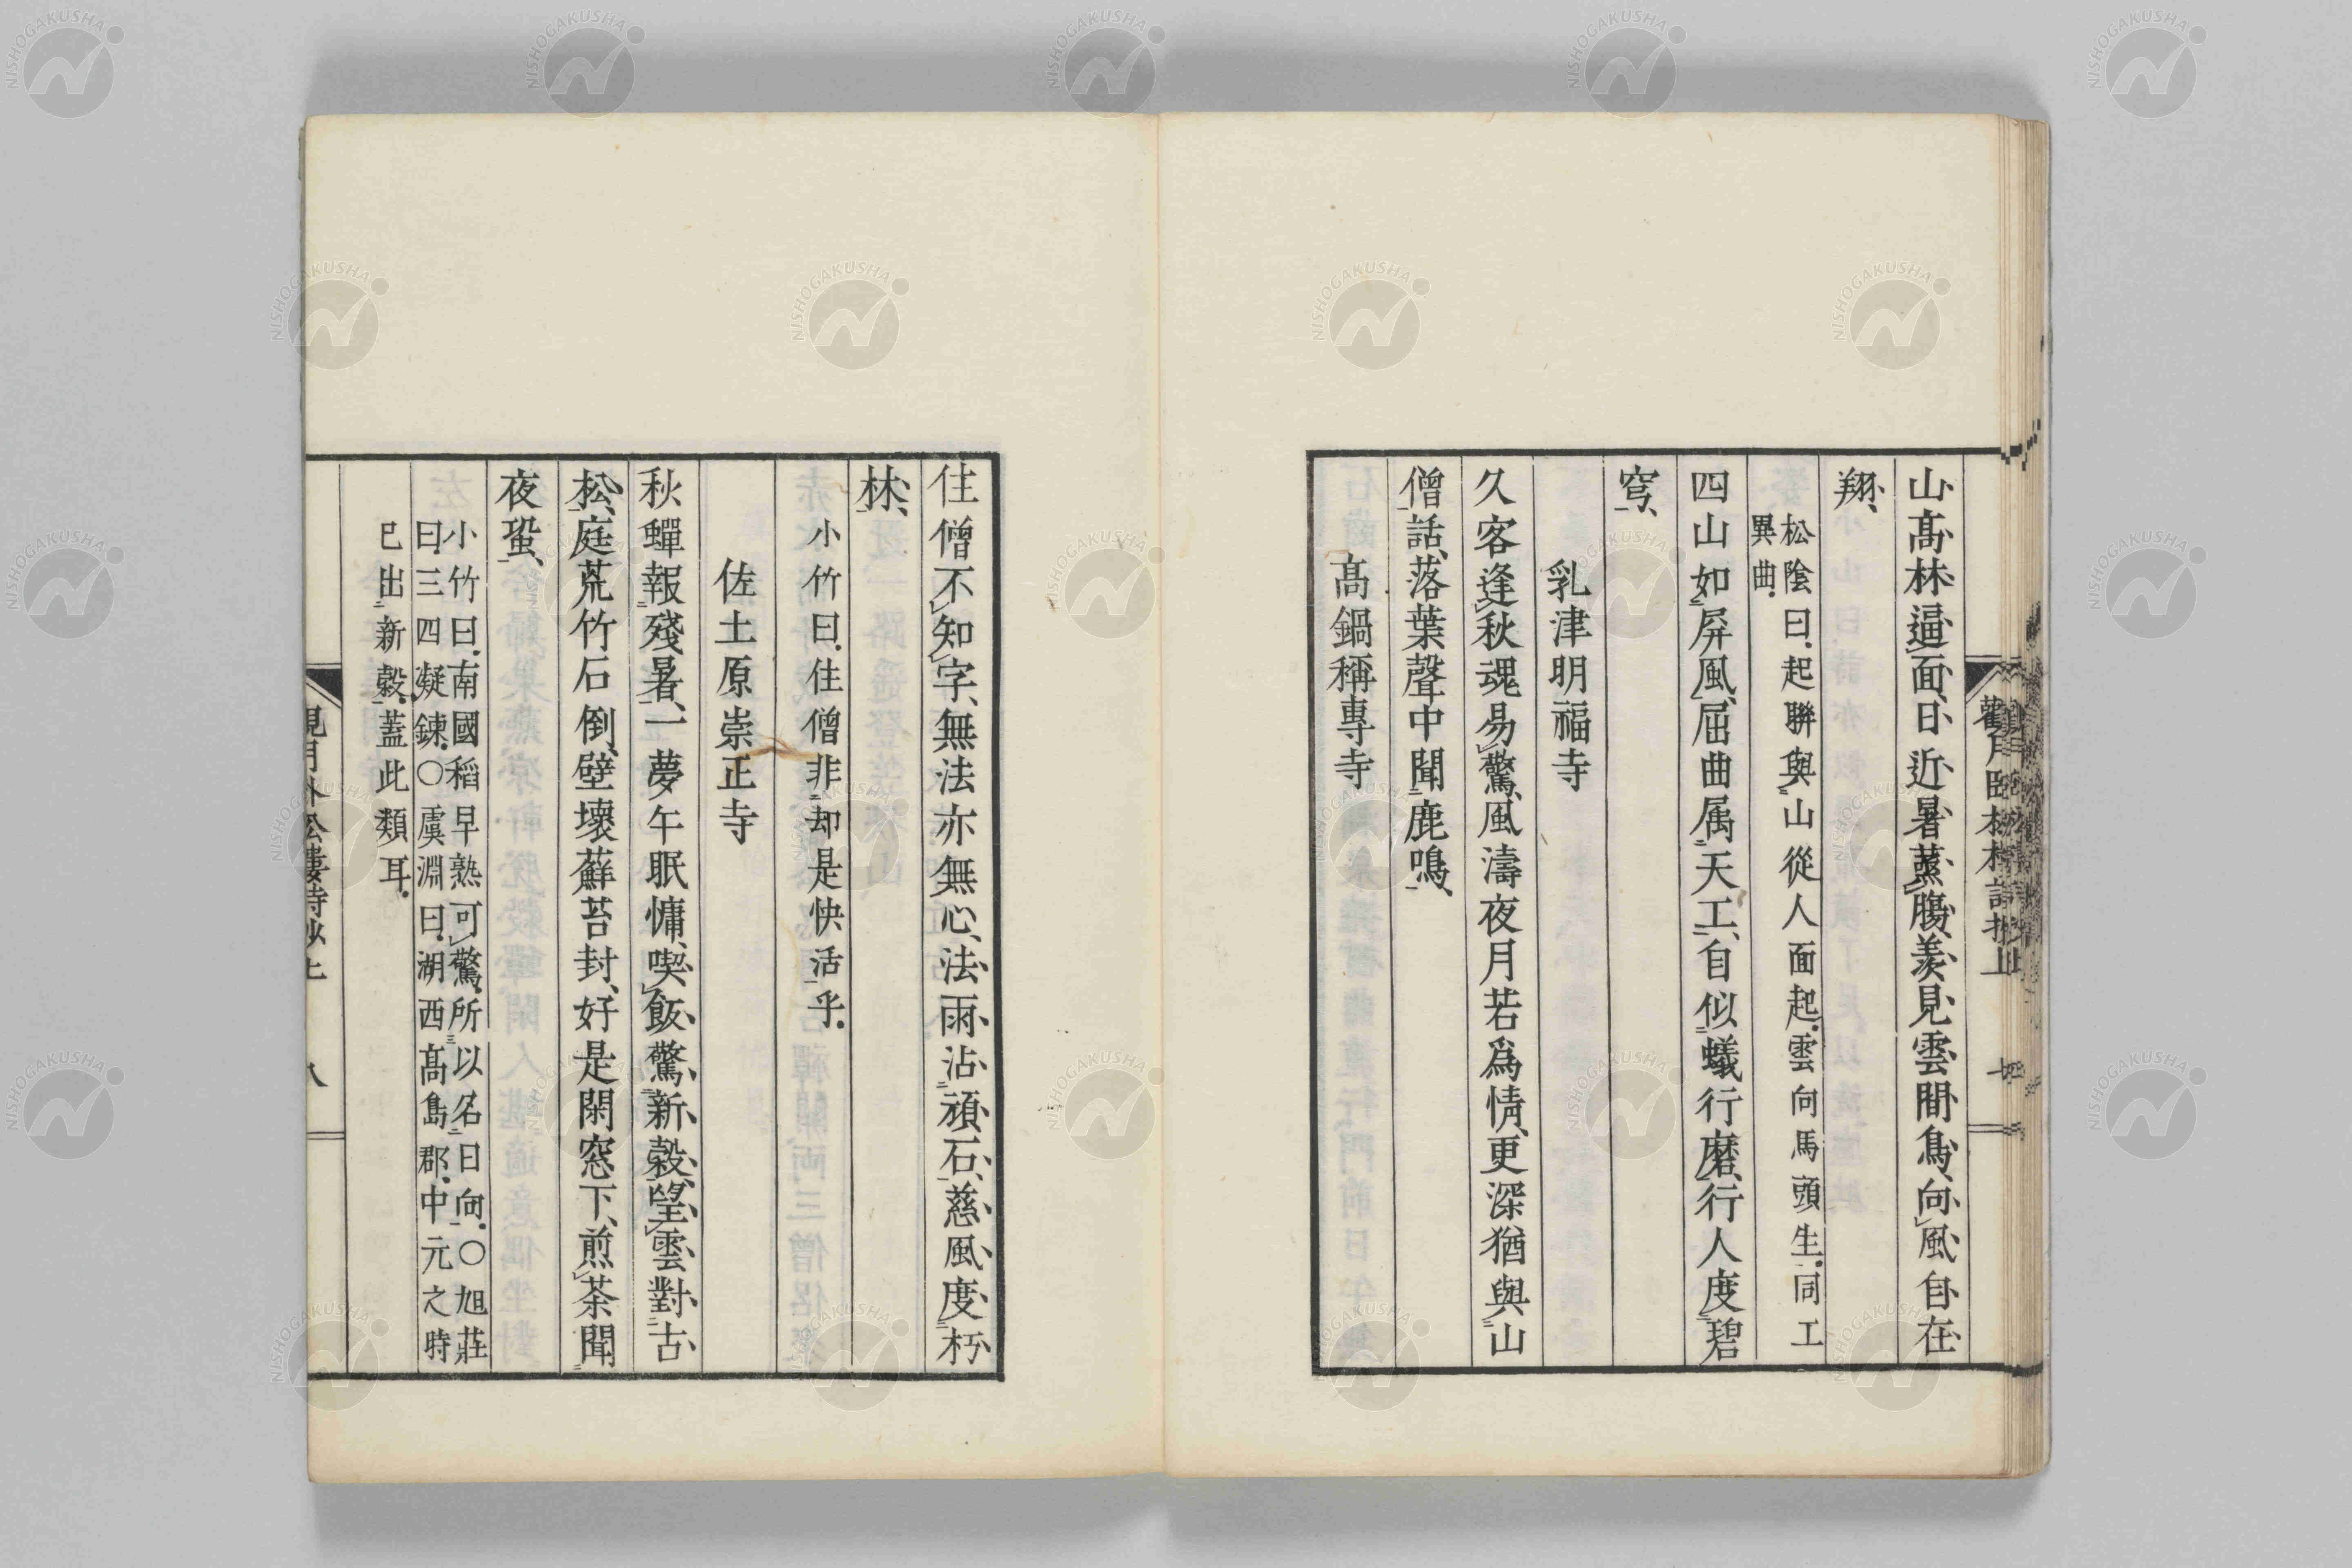 山高林逼面、日近暑蒸膓、羨見雲間鳥、向風自在
翔、
松陰曰、起聯與山從人面起、雲向馬頭生、同工
異曲、
四山如屏風、屈曲属天工、自似蟻行磨、行人度碧
穹、
乳津明福寺
久客逢秋魂易驚、風濤夜月若爲情、更深猶與山
僧話、落葉聲中聞鹿鳴、
高鍋稱專寺
住僧不知字、無法亦無心、法雨沾頑石、慈風度朽
林、
小竹曰、住僧非却是快活乎、
佐土原崇正寺
秋蟬報殘暑、一夢午眠慵、喫飯驚新穀、望雲對古
松、庭荒竹石倒、壁壞蘚苔封、好是閑窓下、煎茶聞
夜蛩、
小竹曰、南國稻早熟可驚、所以名日向、〇旭莊
曰、三四凝鍊、〇虞淵曰、湖西高島郡、中元之時
已出新穀、蓋此類耳、
八
NISHOGAKUSHA